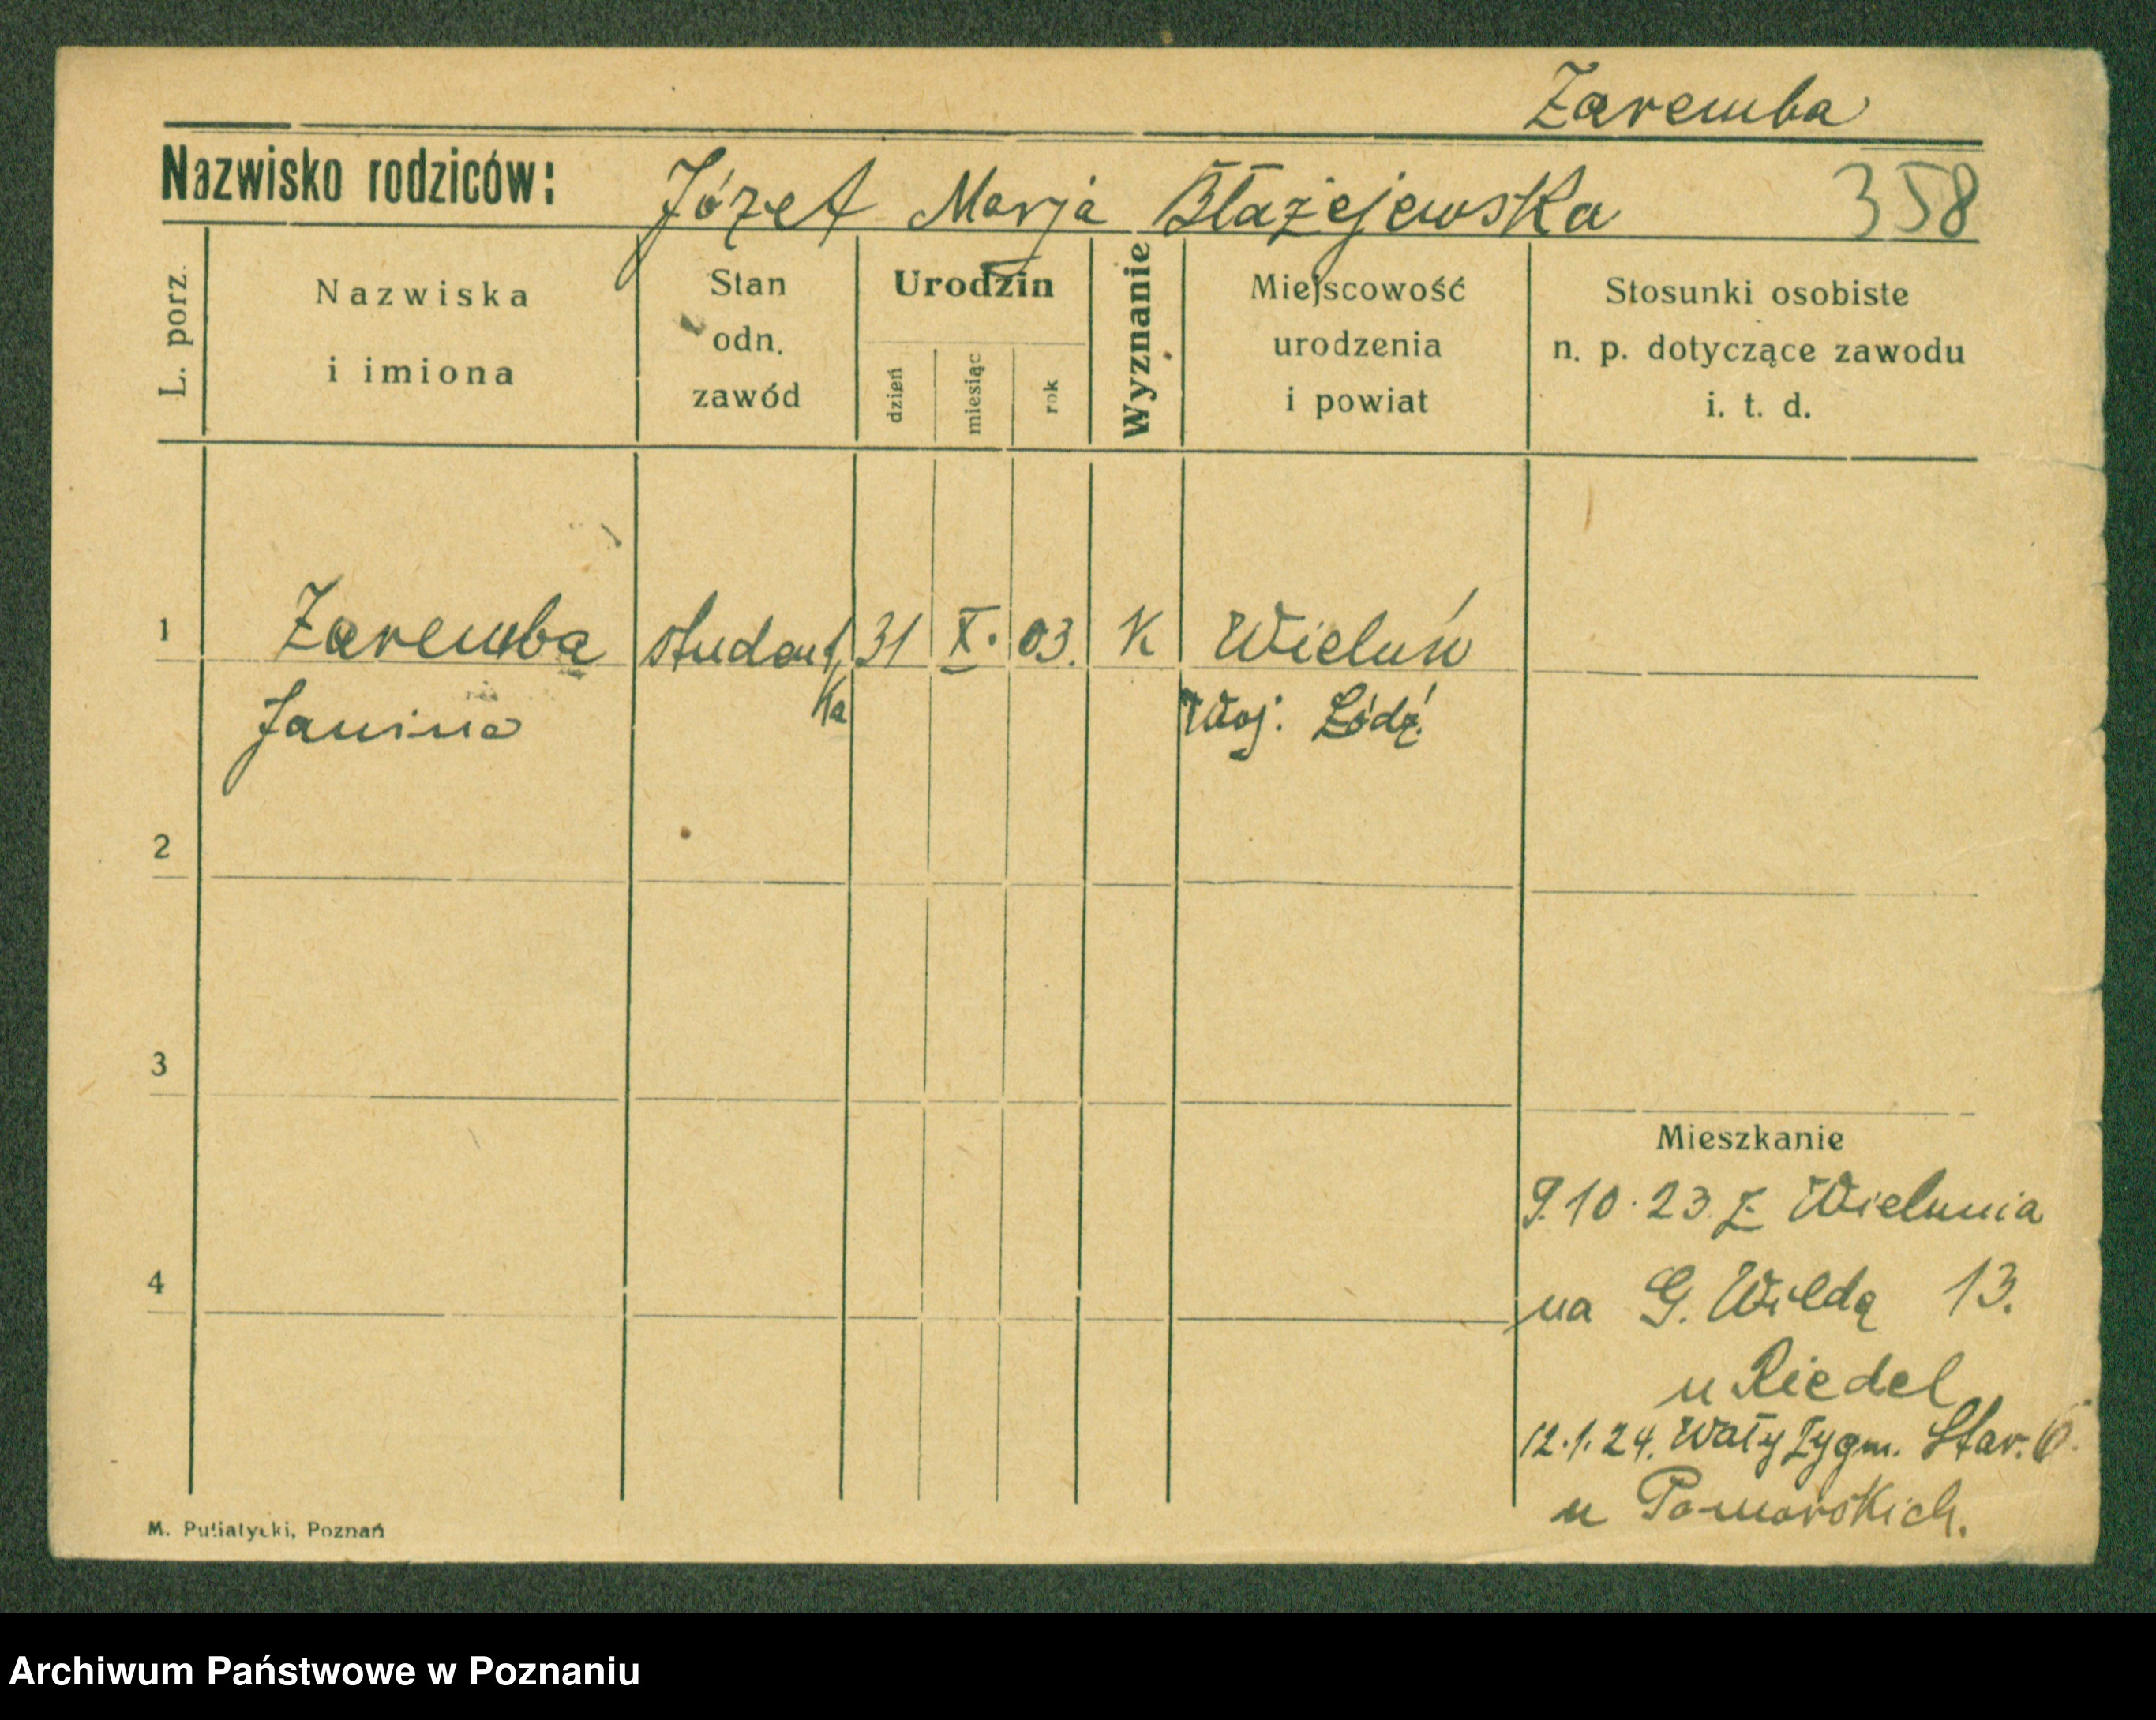 Zaremba
Nazwisko rodziców: Józef Marja Błażejewska 358
L. porz.
Nazwiska i imiona
Stan odn. zawód
Urodzin
dzień
miesiąc
rok
Wyznanie
Miejscowość urodzenia i powiat
Stosunki osobiste n. p. dotyczące zawodu i. t. d.
1 Zaremba student 31 X. 03. K Wieluń
Janina ka Woj. Łódź
2
3
Mieszkanie
9.10.23 z Wielunia
4
na G. Wildą 13.
u Riedel
12.1.24. Wały Zygm. Star. 6.
u Pomorskich.
M. Putiatycki, Poznań
Archiwum Państwowe w Poznaniu